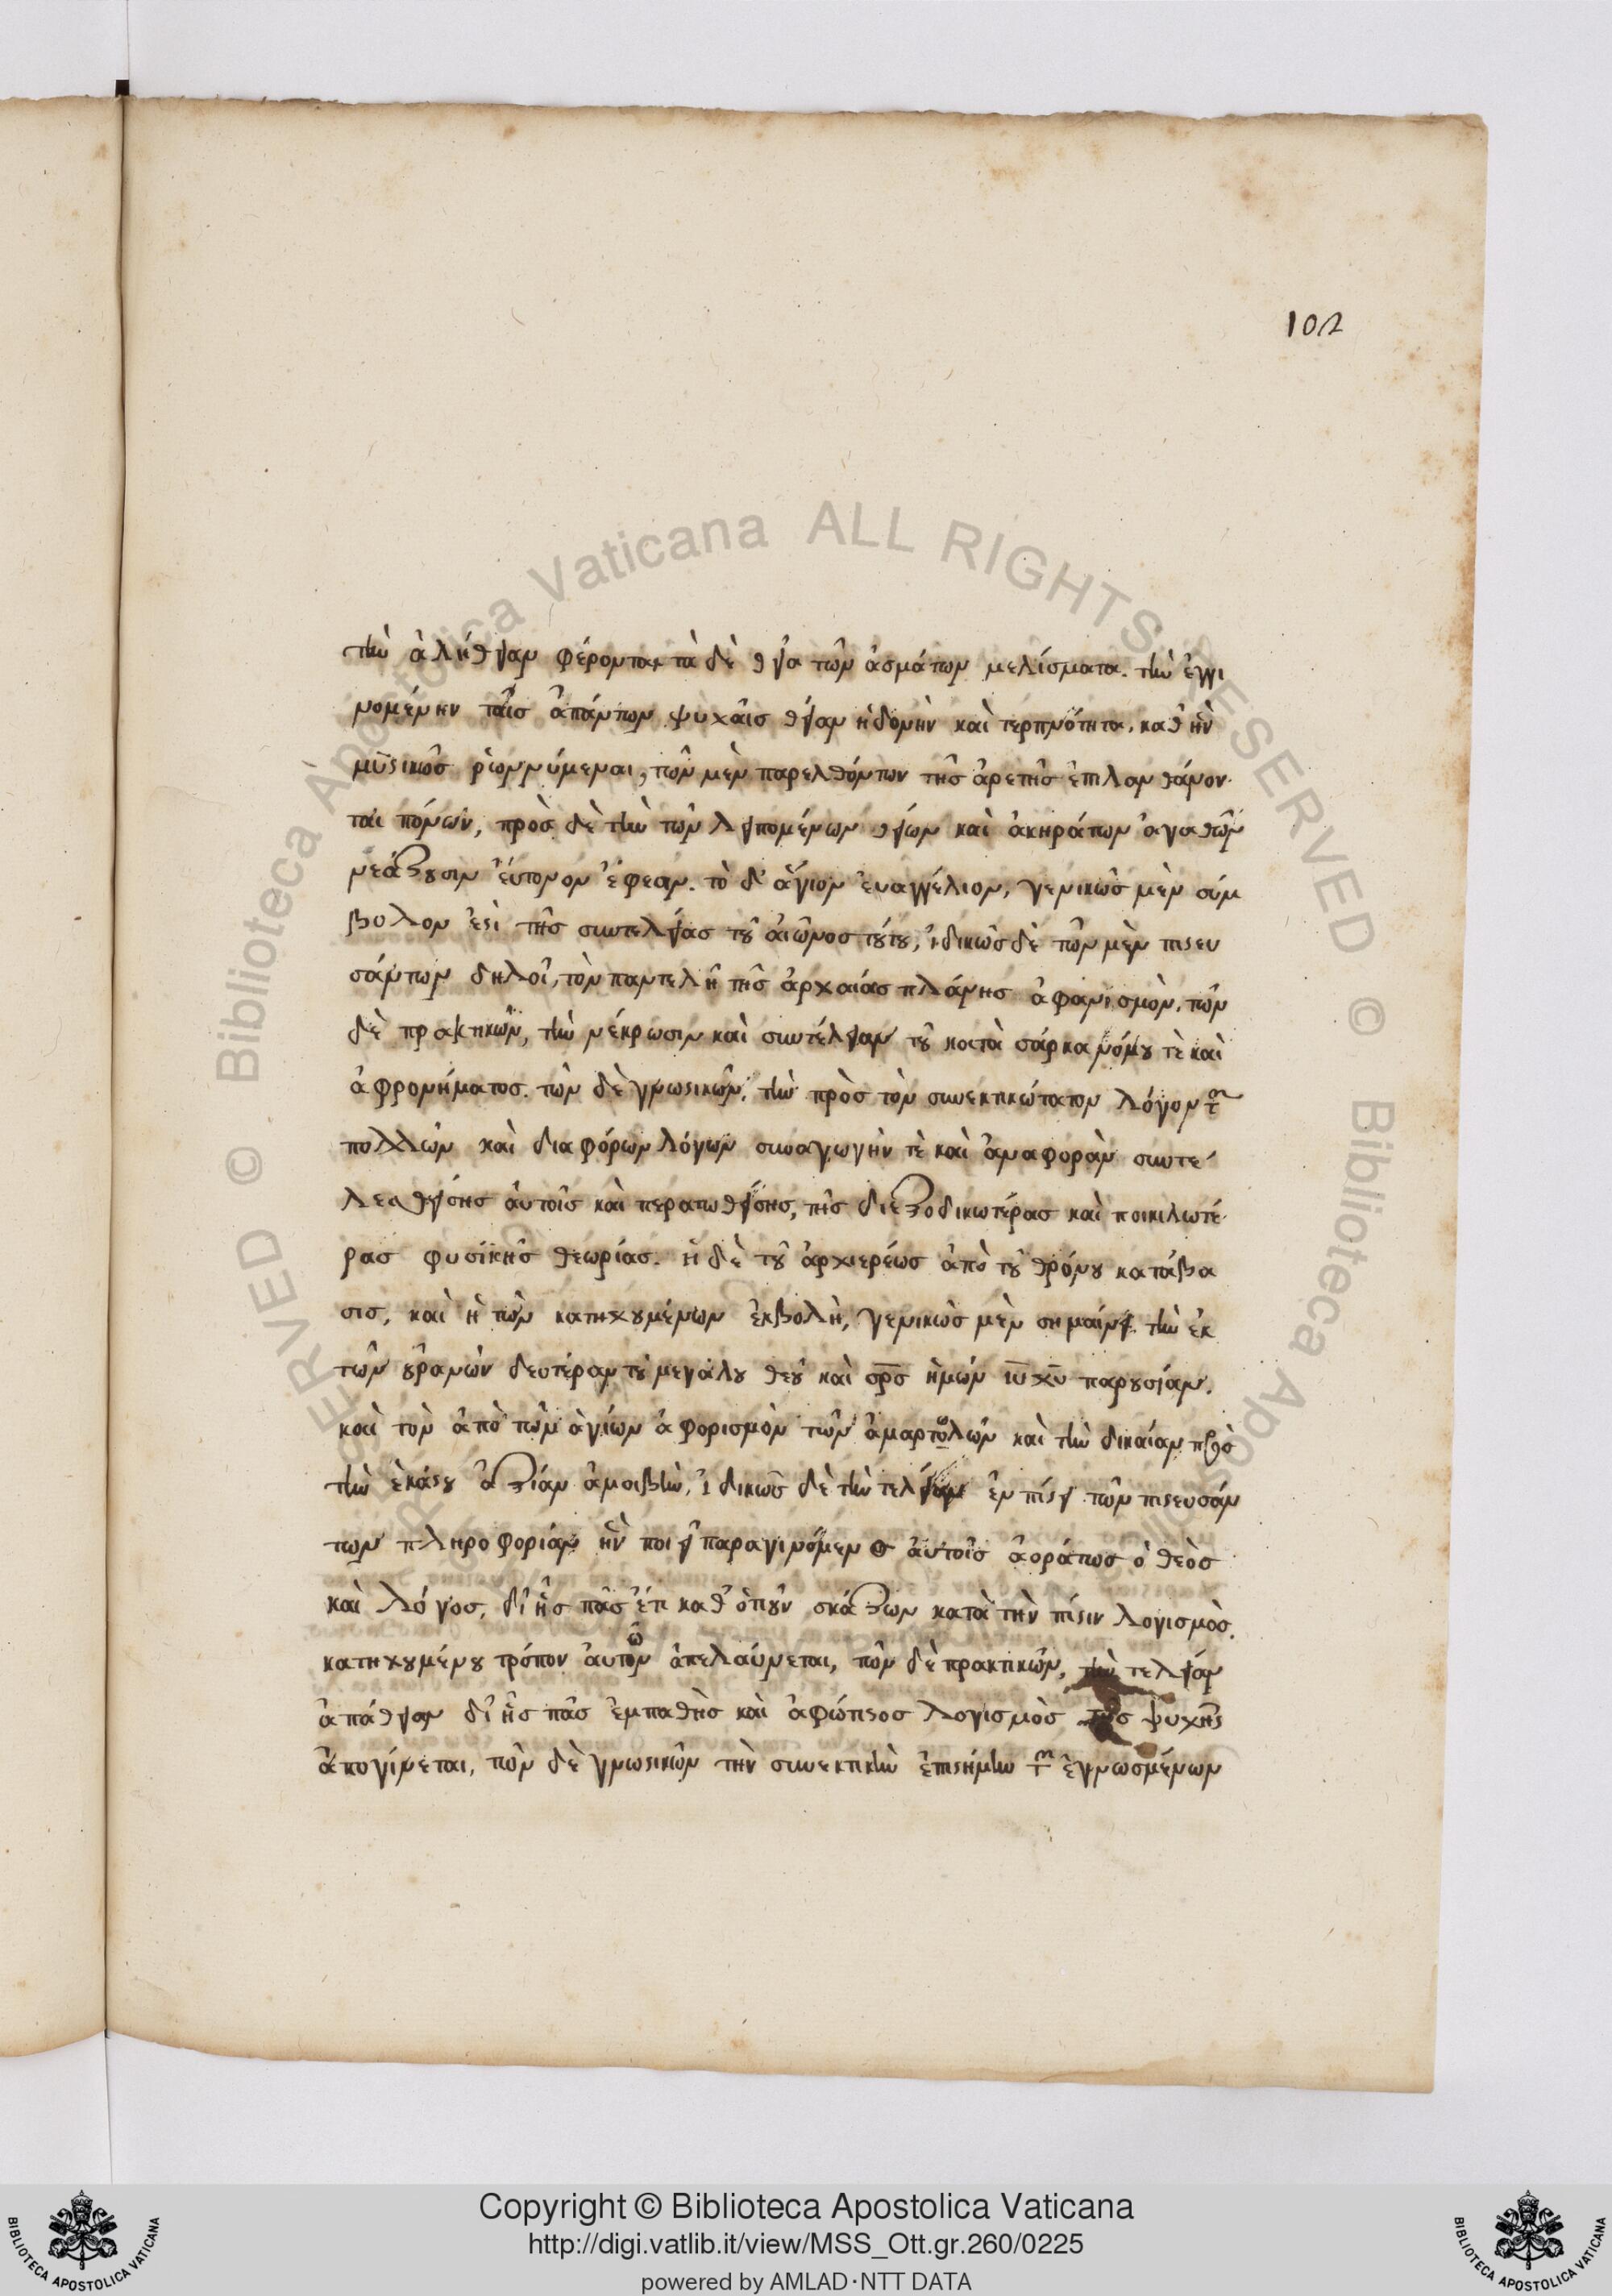 102
τὴν ἀλήθειαν φέρονται τὰ δὲ θεῖα τῶν ἀσμάτων μελίσματα. τὴν ἐγγι
νομένην ταῖς ἁπάντων ψυχαῖς θείαν ἡδονὴν καὶ τερπνότητα, καθ' ἣν
μυστικῶς ῥωννύμεναι, τῶν μὲν παρελθόντων τῆς ἀρετῆς ἐπιλανθάνον
ται πόνων, πρὸς δὲ τὴν τῶν λειπομένων θείων καὶ ἀκηράτων ἀγαθῶν
νεάζουσιν εὔτονον ἔφεσιν. τὸ δ' ἅγιον εὐαγγέλιον, γενικῶς μὲν σύμ
βολον ἐστὶ τῆς συντελείας τοῦ αἰῶνος τούτου, ἰδικῶς δὲ τῶν μὲν πιστευ
σάντων δηλοῖ, τὸν παντελῆ τῆς ἀρχαίας πλάνης ἀφανισμὸν, τῶν
δὲ πρακτικῶν, τὴν νέκρωσιν καὶ συντέλειαν τοῦ κατὰ σάρκα νόμου τὲ καὶ
ἀφρονήματος. τῶν δὲ γνωστικῶν, τὴν πρὸς τὸν συνεκτικώτατον λόγον τῶν
πολλῶν καὶ διαφόρων λόγων συναγωγὴν τὲ καὶ ἀναφορὰν συντε
λεσθείσης αὐτοῖς καὶ περατωθείσης, τῆς διεξοδικωτέρας καὶ ποικιλωτέ
ρας φυσικῆς θεωρίας. ἡ δὲ τοῦ ἀρχιερέως ἀπὸ τοῦ θρόνου κατάβα
σις, καὶ ἡ τῶν κατηχουμένων ἐκβολὴ, γενικῶς μὲν σημαίνει τὴν ἐκ
τῶν οὐρανῶν δευτέραν τοῦ μεγάλου θεοῦ καὶ σρ̅ς ἡμῶν ιυ̅ χυ̅ παρουσίαν,
καὶ τὸν ἀπὸ τῶν ἁγίων ἀφορισμὸν τῶν ἁμαρτωλῶν καὶ τὴν δικαίαν πρὸς
τὴν ἑκάστου ἀξίαν ἀμοιβὴν, ἰδικῶς δὲ τὴν τελείαν ἐν πίστει τῶν πιστευσάν
των πληροφορίαν ἣν ποιεῖ παραγινόμενος αὐτοῖς ἀοράτως ὁ θεὸς
καὶ λόγος, δι' ἧς πᾶς ἔτι καθ' ὁτιοῦν σκάζων κατὰ τὴν πίστιν λογισμὸς,
κατηχουμένου τρόπον αὐτῶν ἀπελαύνεται, τῶν δὲ πρακτικῶν, τὴν τελείαν
ἀπάθειαν δι' ἧς πᾶς ἐμπαθὴς καὶ ἀφώτιστος λογισμὸς τῆς ψυχῆς
ἀπογίνεται, τῶν δὲ γνωστικῶν τὴν συνεκτικὴν ἐπιστήμην τῶν ἐγνωσμένων
Copyright © Biblioteca Apostolica Vaticana
http://digi.vatlib.it/view/MSS_Ott.gr.260/0225
powered by AMLAD·NTT DATA